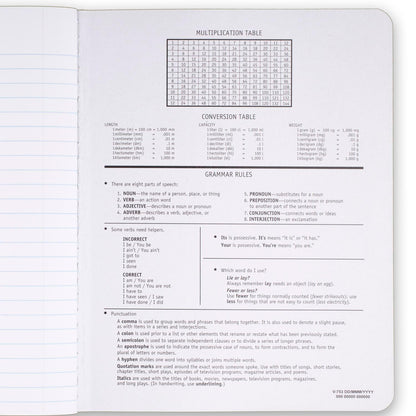 MULTIPLICATION TABLE
1 2 3 4 5 6 7 8 9 10 11 12
2 4 6 8 10 12 14 16 18 20 22 24
3 6 9 12 15 18 21 24 27 30 33 36
4 8 12 16 20 24 28 32 36 40 44 48
5 10 15 20 25 30 35 40 45 50 55 60
6 12 18 24 30 36 42 48 54 60 66 72
7 14 21 28 35 42 49 56 63 70 77 84
8 16 24 32 40 48 56 64 72 80 88 96
9 18 27 36 45 54 63 72 81 90 99 108
10 20 30 40 50 60 70 80 90 100 110 120
11 22 33 44 55 66 77 88 99 110 121 132
12 24 36 48 60 72 84 96 108 120 132 144
CONVERSION TABLE
LENGTH
1 meter (m) = 100 cm = 1,000 mm
1 millimeter (mm) = .001 m
1 centimeter (cm) = .01 m
1 decimeter (dm) = .1 m
1 dekameter (dkm) = 10 m
1 hectometer (hm) = 100 m
1 kilometer (km) = 1,000 m
CAPACITY
1 liter (l) = 100 cl = 1,000 ml
1 milliliter (ml) = .001 l
1 centiliter (cl) = .01 l
1 deciliter (dl) = .1 l
1 dekaliter (dkl) = 10 l
1 hectoliter (hl) = 100 l
1 kiloliter (kl) = 1,000 l
WEIGHT
1 gram (g) = 100 cg = 1,000 mg
1 milligram (mg) = .001 g
1 centigram (cg) = .01 g
1 decigram (dg) = .1 g
1 dekagram (dkg) = 10 g
1 hectogram (hg) = 100 g
1 kilogram (kg) = 1,000 g
GRAMMAR RULES
• There are eight parts of speech:
1. NOUN—the name of a person, place, or thing
2. VERB—an action word
3. ADJECTIVE—describes a noun or pronoun
4. ADVERB—describes a verb, adjective, or
another adverb
5. PRONOUN—substitutes for a noun
6. PREPOSITION—connects a noun or pronoun
to another part of the sentence
7. CONJUNCTION—connects words or ideas
8. INTERJECTION—an exclamation
• Some verbs need helpers.
INCORRECT
I be / You be
I ain't / You ain't
I got to
I seen
I done
CORRECT
I am / You are
I am not / You are not
I have to
I have seen / I saw
I have done / I did
• Its is possessive. It's means "it is" or "it has."
Your is possessive. You're means "you are."
• Which word do I use?
Lie or lay?
Always remember lay needs an object (lay an egg).
Fewer or less?
Use fewer for things normally counted (fewer strikeouts); use
less for things that are not easy to count (less electricity).
• Punctuation
A comma is used to group words and phrases that belong together. It is also used to denote a slight pause,
as with items in a series and interjections.
A colon is used prior to a list or other elements that rename or restate what has been previously stated.
A semicolon is used to separate independent clauses or to divide a series of longer phrases.
An apostrophe is used to indicate the possessive case of nouns, to form contractions, and to form the
plural of letters or numbers.
A hyphen divides one word into syllables or joins multiple words.
Quotation marks are used around the exact words someone spoke. Use with titles of songs, short stories,
chapter titles, short plays, episodes of television programs, magazine articles, and poems.
Italics are used with the titles of books, movies, newspapers, television programs, magazines,
and long plays. (In handwriting, use underlining).